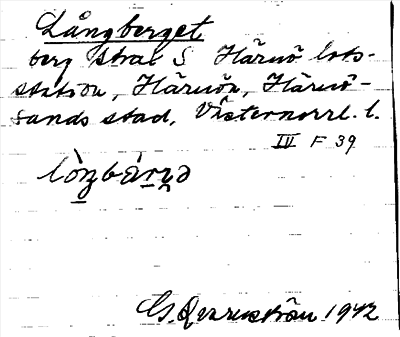 Långberget
berg strax S Härnö lots-
station, Härnön, Härnö-
sands stad, Västernorrl. l.
IV F 39
1942